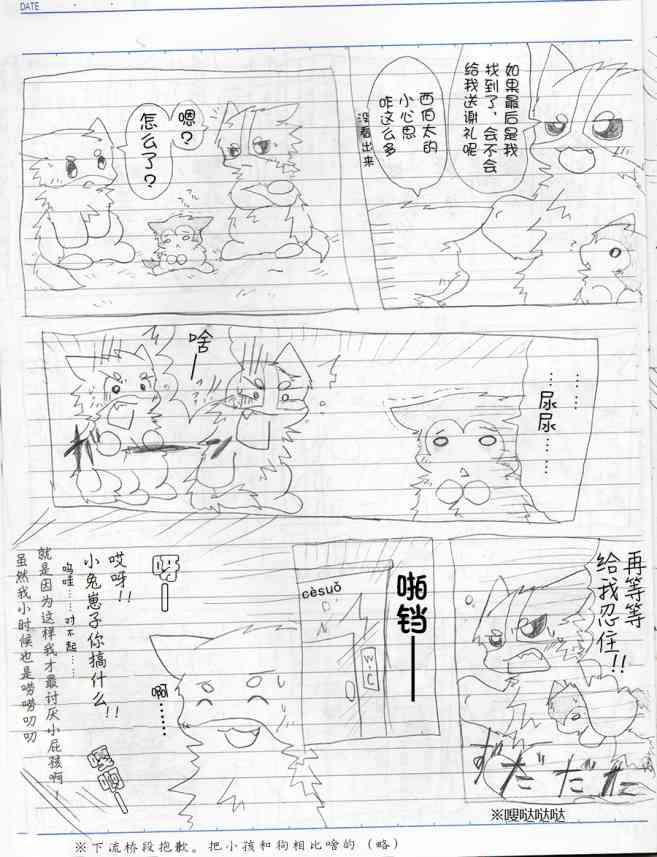 DATE
如果最后是我
找到了，会不会
给我送谢礼呢
西伯太的
小心思
咋这么多
没看出来
嗯？
怎么了？
……
…尿尿……
啥—
再等等
给我忍住!!
ずだだだ
※嗖哒哒哒
啪铛——
cèsuǒ
W·C
啊……
哎呀!!
小兔崽子你搞什么!!
呜哇……对不起……
就是因为这样我才最讨厌小屁孩啊！
虽然我小时候也是唠唠叨叨
※下流桥段抱歉。把小孩和狗相比啥的（略）